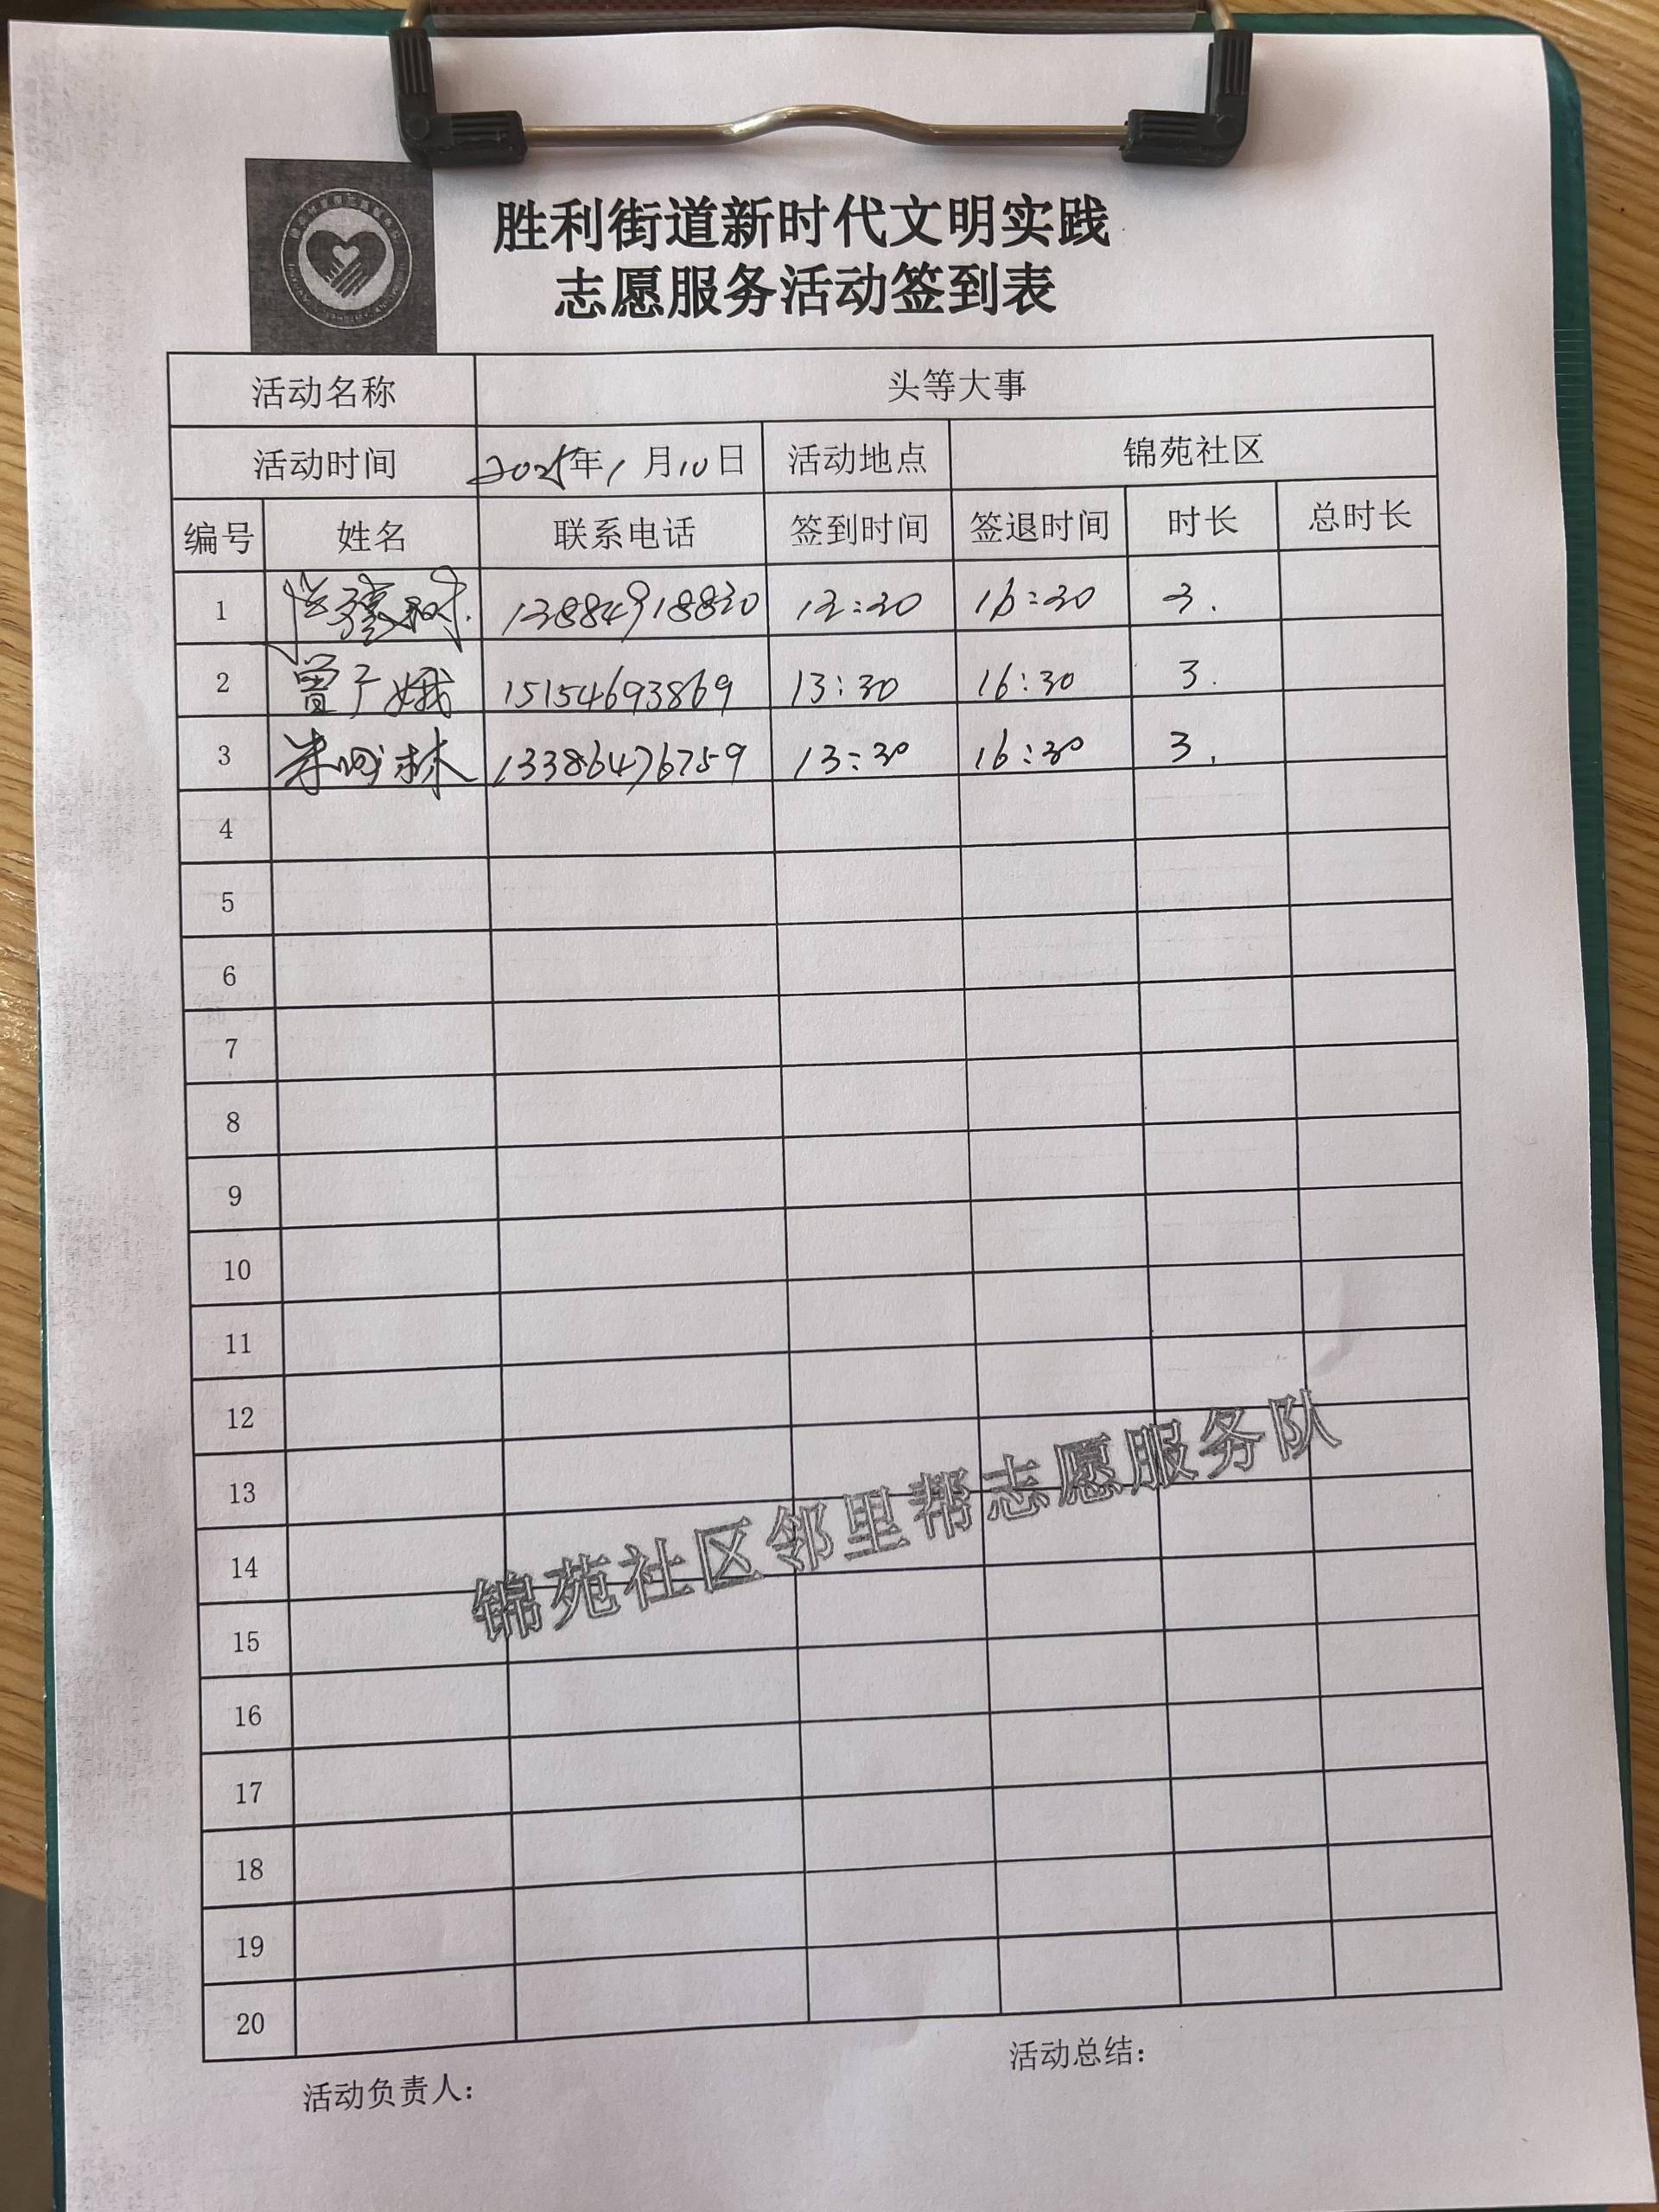 胜利街道新时代文明实践
志愿服务活动签到表
活动名称 头等大事
活动时间 2025年1月10日 活动地点 锦苑社区
编号 姓名 联系电话 签到时间 签退时间 时长 总时长
1 13884918820 13:30 16:30 3.
2 曾广娥 15154693869 13:30 16:30 3.
3 林 13386476759 13:30 16:30 3.
4
5
6
7
8
9
10
11
12
13
14
15
16
17
18
19
20
锦苑社区邻里帮志愿服务队
活动负责人: 活动总结: